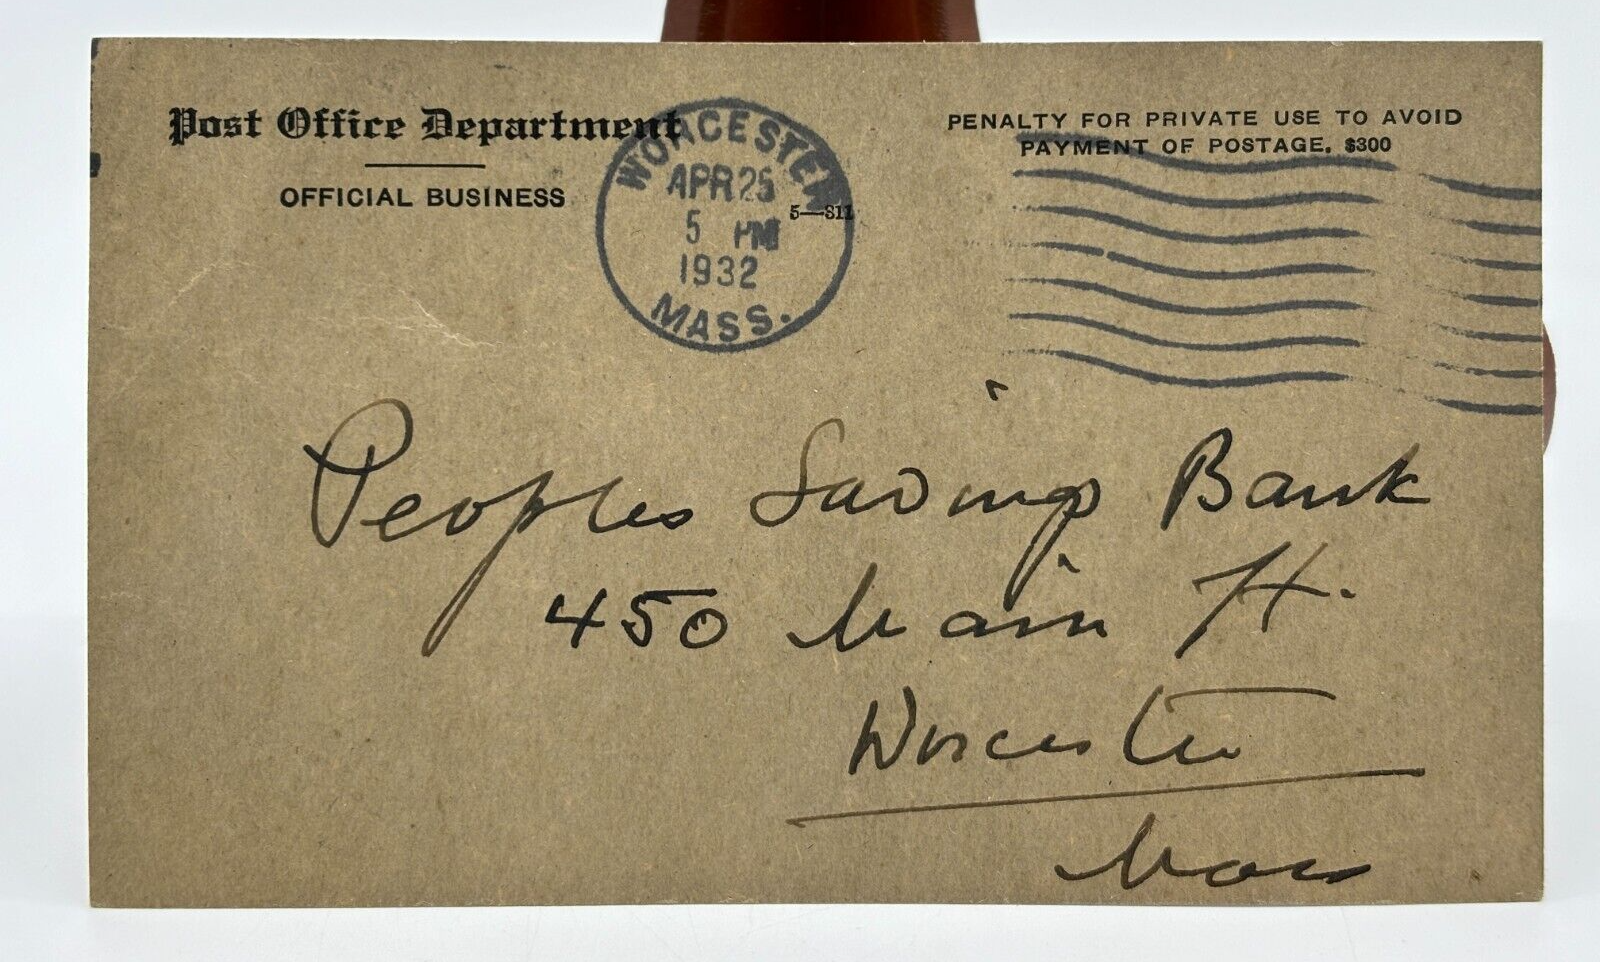 Post Office Department
OFFICIAL BUSINESS
PENALTY FOR PRIVATE USE TO AVOID
PAYMENT OF POSTAGE, $300
WORCESTER
APR 25
5 PM
1932
MASS.
5—311
Peoples Savings Bank
450 Main St.
Worcester
Mass